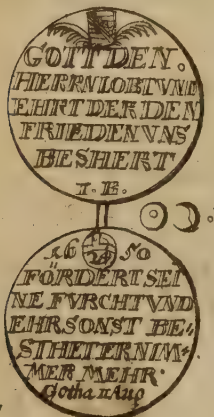 GOTT DEN.
HERRN LOBT VND
EHRT DER DEN
FRIEDEN VNS
BESHERT
I. B.
16 24 50
FÖRDERT SEI
NE FVRCHT VND
EHR SONST BE-
STHET ER NIM-
MER MEHR.
Gotha 11 Aug